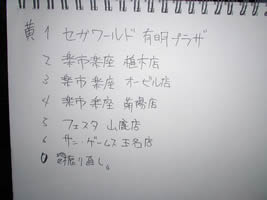 黄 1 セガワールド 有明プラザ
2 楽市楽座 植木店
3 楽市楽座 オービル店
4 楽市楽座 荷揚店
5 フェスタ 山鹿店
6 サン・ゲームス 玉名店
0 振り直し。